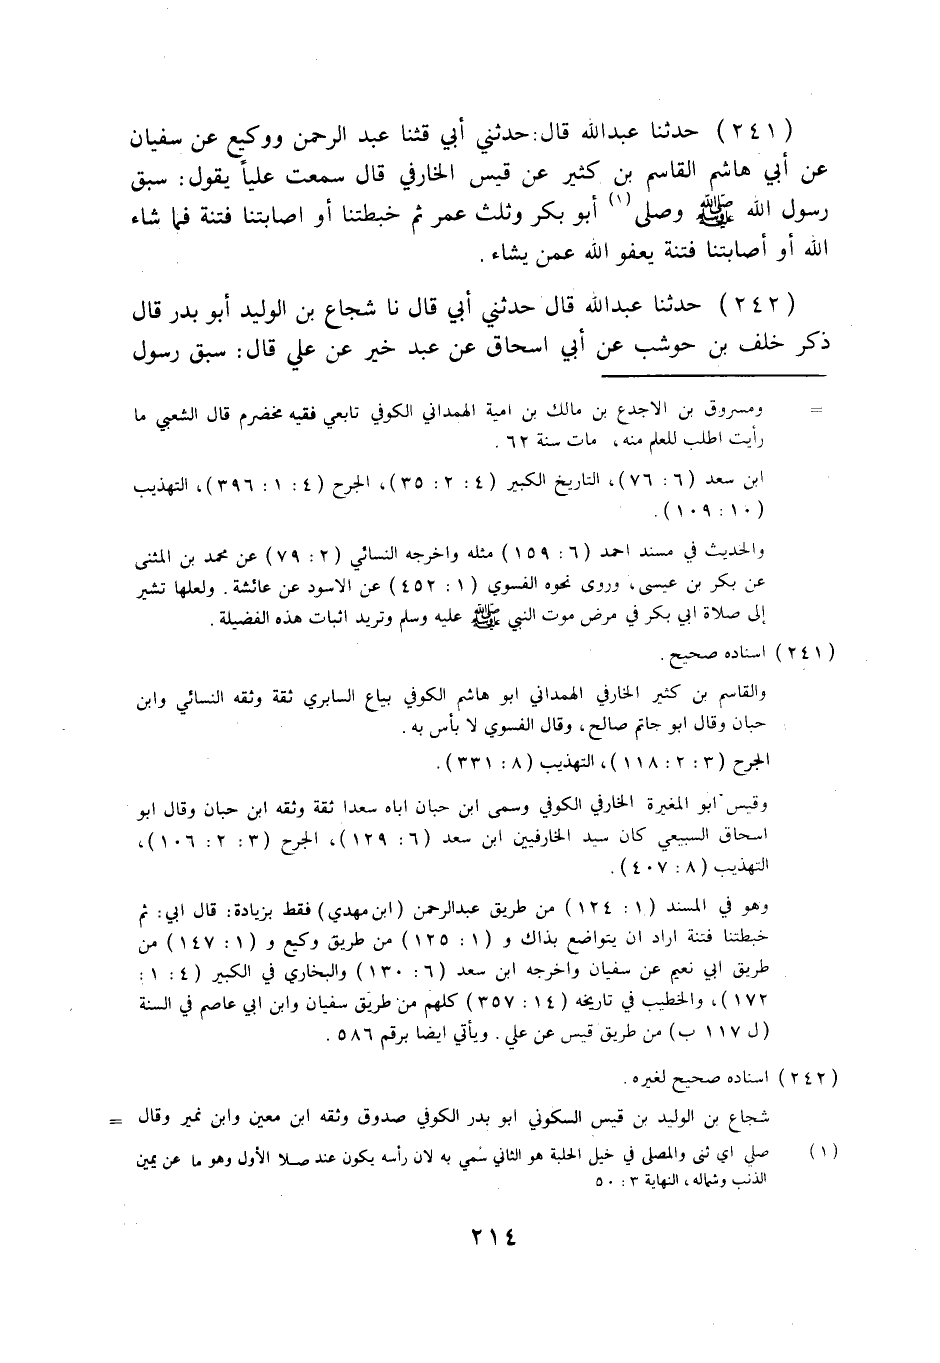 (٢٤١) حدثنا عبدالله قال: حدثني أبي قثنا عبد الرحمن ووكيع عن سفيان
عن أبي هاشم القاسم بن كثير عن قيس الخارفي قال سمعت علياً يقول: سبق
رسول الله ﷺ وصلى(١) أبو بكر وثلث عمر ثم خبطتنا أو اصابتنا فتنة فما شاء
الله أو أصابتنا فتنة يعفو الله عمن يشاء .
(٢٤٢) حدثنا عبدالله قال حدثني أبي قال نا شجاع بن الوليد أبو بدر قال
ذكر خلف بن حوشب عن أبي اسحاق عن عبد خير عن علي قال: سبق رسول
= ومسروق بن الاجدع بن مالك بن امية الهمداني الكوفي تابعي فقيه مخضرم قال الشعبي ما
رأيت اطلب للعلم منه، مات سنة ٦٢ .
ابن سعد (٦: ٧٦)، التاريخ الكبير (٤: ٢: ٣٥)، الجرح (٤: ١: ٣٩٦)، التهذيب
(١٠: ١٠٩).
والحديث في مسند احمد (٦: ١٥٩) مثله واخرجه النسائي (٢: ٧٩) عن محمد بن المثنى
عن بكر بن عيسى، وروى نحوه الفسوي (١: ٤٥٢) عن الاسود عن عائشة. ولعلها تشير
إلى صلاة ابي بكر في مرض موت النبي ﷺ عليه وسلم وتريد اثبات هذه الفضيلة .
(٢٤١) اسناده صحيح .
والقاسم بن كثير الخارفي الهمداني ابو هاشم الكوفي بياع السابري ثقة وثقه النسائي وابن
حبان وقال ابو جاتم صالح، وقال الفسوي لا بأس به .
الجرح (٣: ٢: ١١٨)، التهذيب (٨: ٣٣١).
وقيس ابو المغيرة الخارفي الكوفي وسمى ابن حبان اباه سعدا ثقة وثقه ابن حبان وقال ابو
اسحاق السبيعي كان سيد الخارفيين ابن سعد (٦: ١٢٩)، الجرح (٣: ٢: ١٠٦)،
التهذيب (٨: ٤٠٧).
وهو في المسند (١: ١٢٤) من طريق عبدالرحمن (ابن مهدي) فقط بزيادة: قال ابي: ثم
خبطتنا فتنة اراد ان يتواضع بذاك و (١: ١٢٥) من طريق وكيع و (١: ١٤٧) من
طريق ابي نعيم عن سفيان واخرجه ابن سعد (٦: ١٣٠) والبخاري في الكبير (٤: ١:
١٧٢)، والخطيب في تاريخه (١٤: ٣٥٧) كلهم من طريق سفيان وابن ابي عاصم في السنة
(ل ١١٧ ب) من طريق قيس عن علي. ويأتي ايضا برقم ٥٨٦ .
(٢٤٢) اسناده صحيح لغيره .
شجاع بن الوليد بن قيس السكوني ابو بدر الكوفي صدوق وثقه ابن معين وابن نمير وقال =
(١) صلي اي ثنى والمصلى في خيل الحلبة هو الثاني سُمي به لان رأسه يكون عند صلا الأول وهو ما عن يمين
الذنب وشماله، النهاية ٣: ٥٠
٢١٤